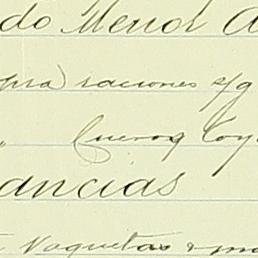 do Menor A
pra) raciones s/g
Cueros Coy
ancias
Vaquetas & ma